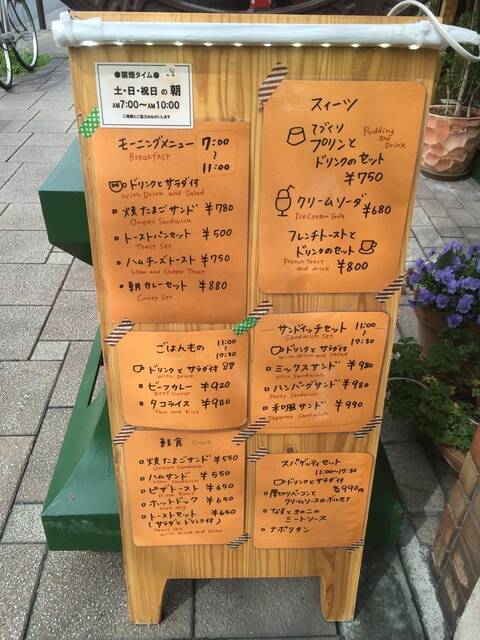 ●禁煙タイム●
土・日・祝日の朝
AM7:00～AM10:00
モーニングメニュー 7:00
Breakfast ～
11:00
ドリンクとサラダ付
With Drink and Salad
・焼たまごサンド ¥780
Omelet Sandwich
・トーストパンセット ¥500
Toast Set
・ハムチーズトースト ¥750
Ham and Cheese Toast
・朝カレーセット ¥880
Curry Set
スイーツ
てづくり
プリンと
ドリンクのセット
Pudding
and
Drink
¥750
クリームソーダ
Ice Cream Soda ¥680
フレンチトーストと
ドリンクのセット
French Toast
and drink ¥800
ごはんもの 11:00
～
17:30
ドリンクとサラダ付
With Drink
・ビーフカレー ¥920
Beef Curry
・タコライス ¥980
Taco and Rice
サンドイッチセット 11:00
Sandwich Set ～
17:30
ドリンクとサラダ付
With drink and Salad
・ミックスサンド ¥980
Mix Sandwich
・ハンバーグサンド ¥980
Patty Sandwich
・和風サンド ¥990
Japanese Sandwich
軽食 Snack
・焼たまごサンド ¥550
Omelet Sandwich
・ハムサンド ¥550
・ピザトースト ¥650
・ホットドック ¥650
・トーストセット ¥650
(サラダとドリンク付)
Toast Set
with Drink and Salad
スパゲッティセット
11:00～17:30
ドリンクとサラダ付
各990円
・厚切りベーコンと
クリームソースのボルセナ
・なすときのこの
ミートソース
・ナポリタン